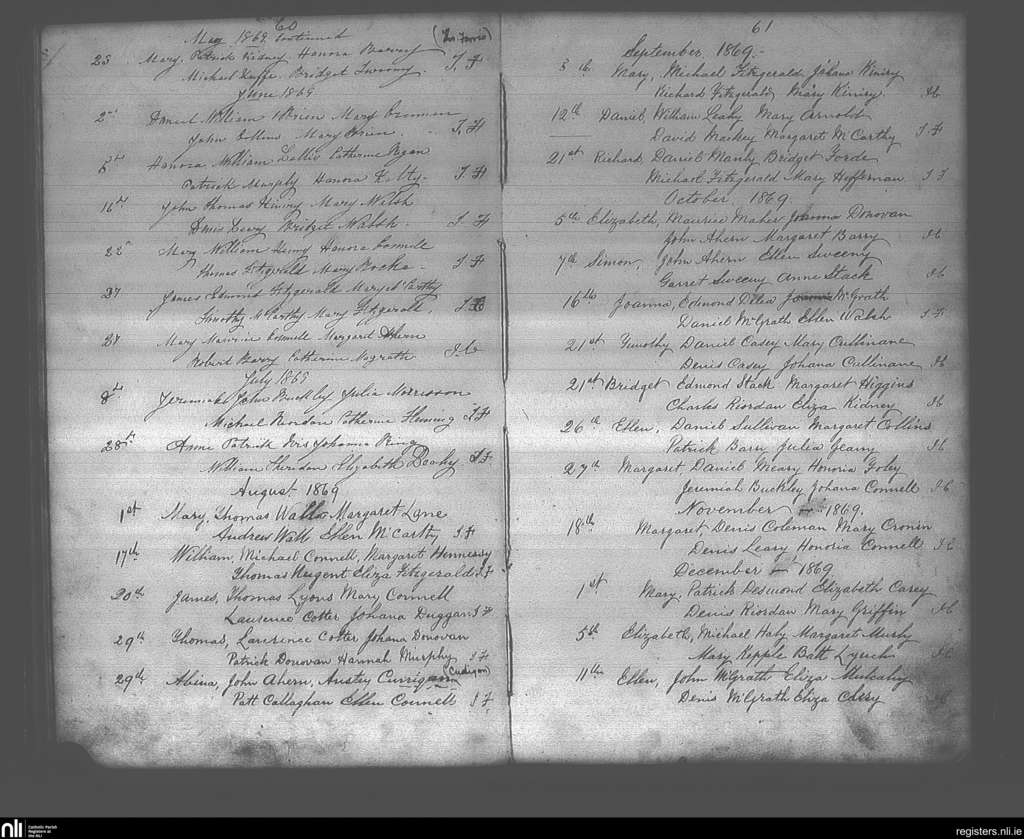 60
May 1869 Continued
23 Mary, Patrick Kidney Honora
Michael Bridget Twoomy. T. F
June 1869
2nd Daniel William Brien Mary
John Collins Mary Brien. T. F
Honora William Catherine Regan
Patrick Murphy Honora T. F
16th John Thomas Kiniry Mary Walsh
Denis Leary Bridget Walsh. T. F
22nd Mary William Honora Connell
Thomas Fitzgerald Mary Roche. T. F
27 James Edmond Fitzgerald Mary McCarthy
Timothy McCarthy Mary Fitzgerald.
27 Mary Maurice Connell Margaret Ahern
Robert Barry Catherine Magrath
July 1869
8th Jeremiah John Buckley Julia Morrisson
Michael Riordon Catherine Fleming T. F
28th Anne Patrick Johanna King
William Sheridan Elizabeth T F.
August 1869
1st Mary, Thomas Wall Margaret Lane
Andrew Wall Ellen McCarthy T F
17th William, Michael Connell, Margaret Hennessy
Thomas Nugent Eliza Fitzgerald T. F
20th James, Thomas Lyons Mary Connell
Laurence Cotter Johana Duggan T. F
29th Thomas, Lawrence Cotter Johana Donovan
Patrick Donovan Hannah Murphy T F
29th Abina, John Ahern, Anstey (Cudigan)
Patt Callaghan Ellen Connell T F.
61
September, 1869.
Mary, Michael Fitzgerald Johana Kiniry
Richard Fitzgerald Mary Kiniry.
12th Daniel William Leahy Mary Arnold
David Mackey Margaret McCarthy T F
21st Richard Daniel Manly Bridget Forde
Michael Fitzgerald Mary Heffernan T F
October, 1869.
5th Elizabeth, Maurice Maher Joanna Donovan
John Ahern Margaret Barry
7th Simon, John Ahern Ellen Sweeny
Garret Sweeny Anne Stack
16th Joanna, Edmond OLea Joanna McGrath
Daniel McGrath Ellen Walsh T F
21st Timothy Daniel Casey Mary Cullinane
Denis Casey Johana Cullinane
21st Bridget Edmond Stack Margaret Higgins
Charles Riordan Eliza Kidney
26th Ellen, Daniel Sullivan Margaret Collins
Patrick Barry Julia Geary
27th Margaret Daniel Meany Honoria Foley
Jeremiah Buckley Johana Connell
November 1869.
18th Margaret, Denis Coleman Mary Cronin
Denis Leary Honoria Connell
December 1869
1st Mary, Patrick Desmond Elizabeth Carey
Denis Riordan Mary Griffin
5th Elizabeth, Michael Haly Margaret Murhy
Mary Kepple Batt Lynch
11th Ellen, John McGrath Eliza Mulcahy
Denis McGrath Eliza Casey
nli Catholic Parish Registers at the NLI
registers.nli.ie